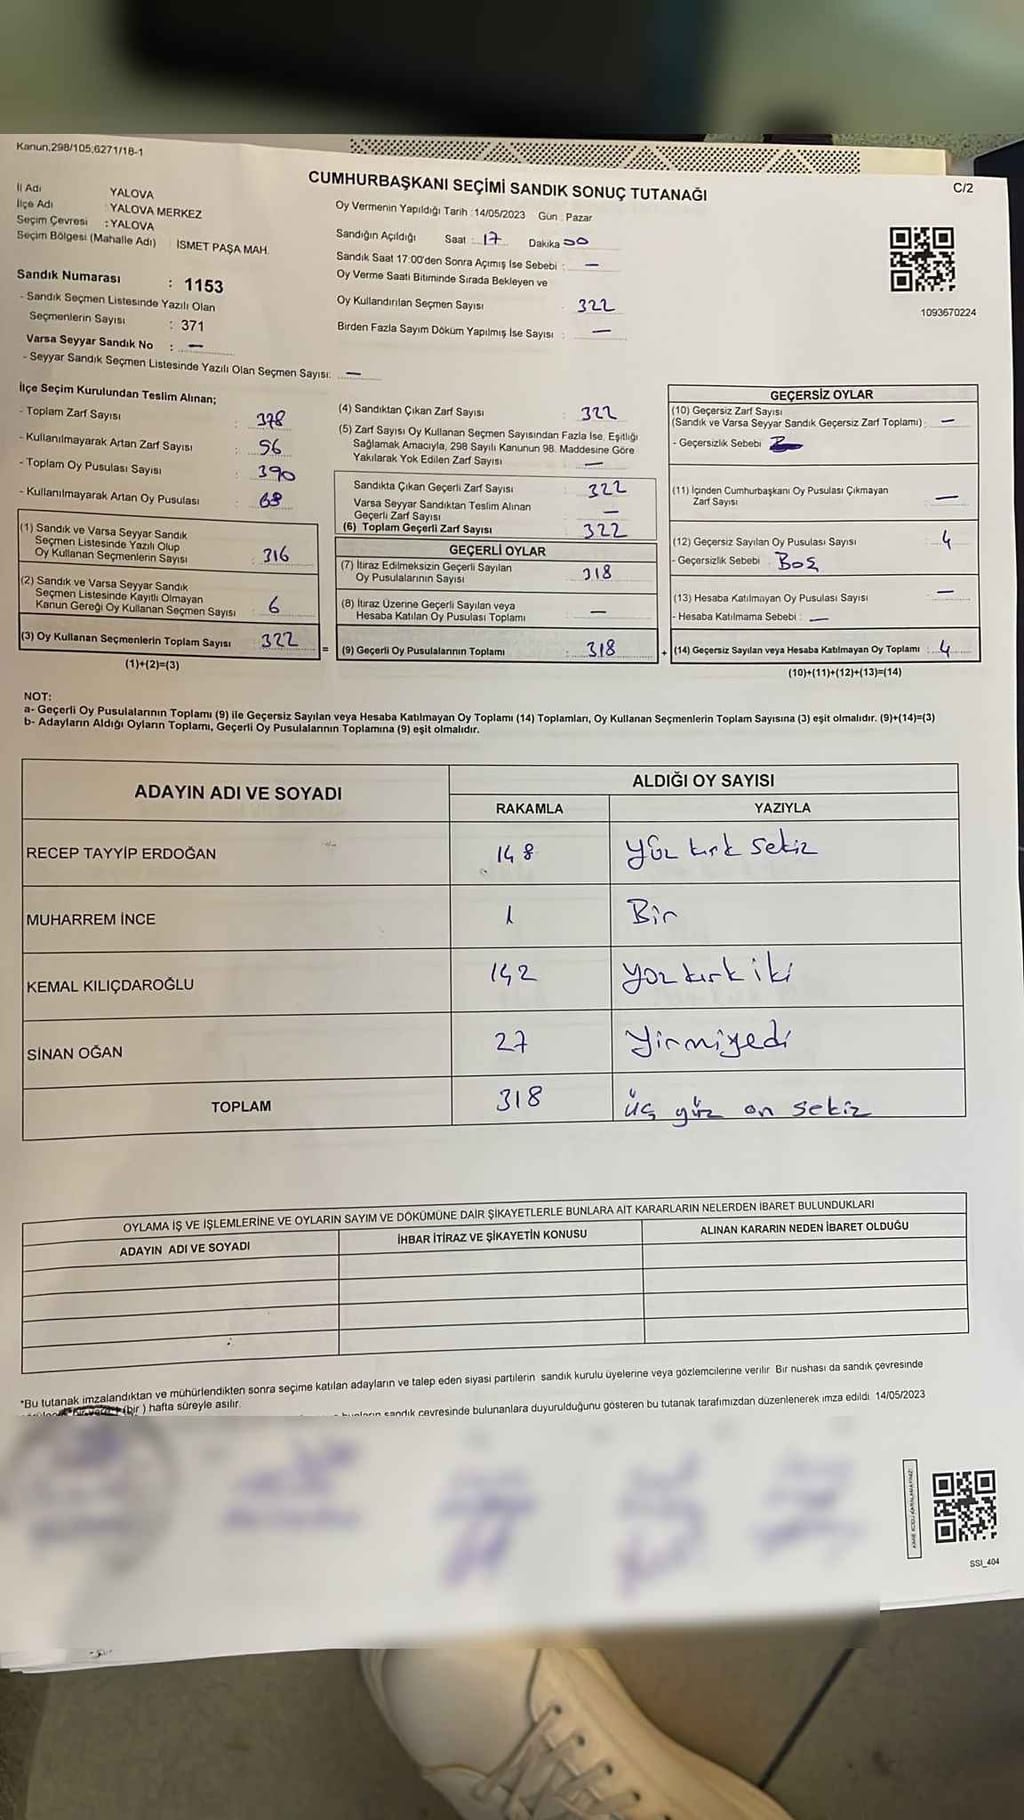 Kanun,298/105,6271/18-1
CUMHURBAŞKANI SEÇİMİ SANDIK SONUÇ TUTANAĞI
C/2
İl Adı YALOVA
İlçe Adı : YALOVA MERKEZ
Seçim Çevresi : YALOVA
Seçim Bölgesi (Mahalle Adı) İSMET PAŞA MAH.
Sandık Numarası : 1153
- Sandık Seçmen Listesinde Yazılı Olan
Seçmenlerin Sayısı : 371
Varsa Seyyar Sandık No : —
- Seyyar Sandık Seçmen Listesinde Yazılı Olan Seçmen Sayısı: —
Oy Vermenin Yapıldığı Tarih :14/05/2023 Gün : Pazar
Sandığın Açıldığı Saat : 17 Dakika 00
Sandık Saat 17:00'den Sonra Açımış İse Sebebi : —
Oy Verme Saati Bitiminde Sırada Bekleyen ve
Oy Kullandırılan Seçmen Sayısı : 322
Birden Fazla Sayım Döküm Yapılmış İse Sayısı : —
1093670224
İlçe Seçim Kurulundan Teslim Alınan;
- Toplam Zarf Sayısı : 378
- Kullanılmayarak Artan Zarf Sayısı : 56
- Toplam Oy Pusulası Sayısı : 390
- Kullanılmayarak Artan Oy Pusulası : 68
(1) Sandık ve Varsa Seyyar Sandık
Seçmen Listesinde Yazılı Olup
Oy Kullanan Seçmenlerin Sayısı : 316
(2) Sandık ve Varsa Seyyar Sandık
Seçmen Listesinde Kayıtlı Olmayan
Kanun Gereği Oy Kullanan Seçmen Sayısı : 6
(3) Oy Kullanan Seçmenlerin Toplam Sayısı : 322 =
(1)+(2)=(3)
(4) Sandıktan Çıkan Zarf Sayısı : 322
(5) Zarf Sayısı Oy Kullanan Seçmen Sayısından Fazla İse, Eşitliği
Sağlamak Amacıyla, 298 Sayılı Kanunun 98. Maddesine Göre
Yakılarak Yok Edilen Zarf Sayısı : —
Sandıkta Çıkan Geçerli Zarf Sayısı : 322
Varsa Seyyar Sandıktan Teslim Alınan
Geçerli Zarf Sayısı : —
(6) Toplam Geçerli Zarf Sayısı : 322
GEÇERLİ OYLAR
(7) İtiraz Edilmeksizin Geçerli Sayılan
Oy Pusulalarının Sayısı : 318
(8) İtiraz Üzerine Geçerli Sayılan veya
Hesaba Katılan Oy Pusulası Toplamı : —
(9) Geçerli Oy Pusulalarının Toplamı : 318 +
GEÇERSİZ OYLAR
(10) Geçersiz Zarf Sayısı
(Sandık ve Varsa Seyyar Sandık Geçersiz Zarf Toplamı) : —
- Geçersizlik Sebebi :
(11) İçinden Cumhurbaşkanı Oy Pusulası Çıkmayan
Zarf Sayısı : —
(12) Geçersiz Sayılan Oy Pusulası Sayısı : 4
- Geçersizlik Sebebi : Boş
(13) Hesaba Katılmayan Oy Pusulası Sayısı : —
- Hesaba Katılmama Sebebi : —
(14) Geçersiz Sayılan veya Hesaba Katılmayan Oy Toplamı : 4
(10)+(11)+(12)+(13)=(14)
NOT:
a- Geçerli Oy Pusulalarının Toplamı (9) ile Geçersiz Sayılan veya Hesaba Katılmayan Oy Toplamı (14) Toplamları, Oy Kullanan Seçmenlerin Toplam Sayısına (3) eşit olmalıdır. (9)+(14)=(3)
b- Adayların Aldığı Oyların Toplamı, Geçerli Oy Pusulalarının Toplamına (9) eşit olmalıdır.
ADAYIN ADI VE SOYADI ALDIĞI OY SAYISI
RAKAMLA YAZIYLA
RECEP TAYYİP ERDOĞAN 148 yüz kırk sekiz
MUHARREM İNCE 1 Bir
KEMAL KILIÇDAROĞLU 142 yüz kırk iki
SİNAN OĞAN 27 yirmiyedi
TOPLAM 318 üç yüz on sekiz
OYLAMA İŞ VE İŞLEMLERİNE VE OYLARIN SAYIM VE DÖKÜMÜNE DAİR ŞİKAYETLERLE BUNLARA AİT KARARLARIN NELERDEN İBARET BULUNDUKLARI
ADAYIN ADI VE SOYADI İHBAR İTİRAZ VE ŞİKAYETİN KONUSU ALINAN KARARIN NEDEN İBARET OLDUĞU
*Bu tutanak imzalandıktan ve mühürlendikten sonra seçime katılan adayların ve talep eden siyasi partilerin sandık kurulu üyelerine veya gözlemcilerine verilir Bir nüshası da sandık çevresinde
(bir ) hafta süreyle asılır.
sandık çevresinde bulunanlara duyurulduğunu gösteren bu tutanak tarafımızdan düzenlenerek imza edildi. 14/05/2023
SSI_404